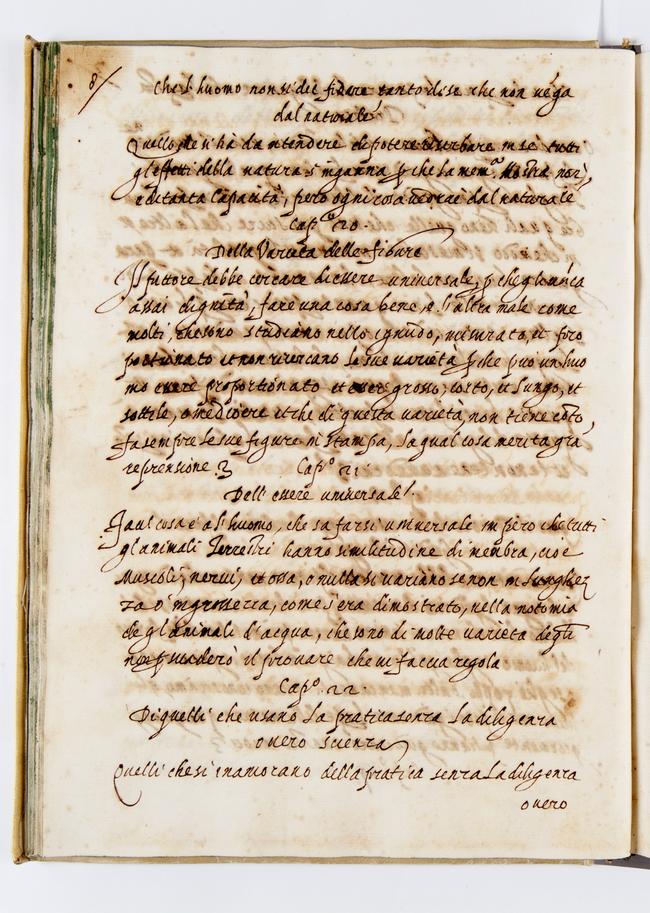 8
Che l'huomo non si dee fidare tanto di se che non vega
dal naturale
Quello che si ha da intendere di potere riserbare in se tutti
gl'effetti della natura s'inganna p che la mem.ª nostra non
e di tanta Capacità, pero ogni cosa vedrai dal naturale
Cap.º 20.
Della Varieta delle figure
Il pittore debbe cercare di essere universale, p che gli manca
assai dignità, fare una cosa bene, e l'altra male come
molti, che sono studiano nello ignudo, misurato, et pro
portionato et non ricercano le sue varietà p che può un huo
mo essere proportionato et essere grosso, corto, et lungo, et
sottile, o mediocre et chi di questa varietà, non tiene coto
fa sempre le sue figure in stampa, la qual cosa merita gra
reprensione. Cap.º 21.
Dell'essere universale.
Facil cosa è a l'huomo, che sa farsi universale in pero che tutti
gl'animali Terrestri hanno similitudine di membra, cioè
Muscoli, nervi, et ossa, o nulla si variano se non in Lunghez
za o in grossezza, come s'era dimostrato, nella notomia
de gl'animali d'acqua, che sono di molte varieta degli
non p suaderò il provare che vi faccia regola
Cap.º 22.
Di quelli che usano la pratica senza la diligenza
overo scienza
Quelli che si inamorano della pratica senza la diligenza
overo